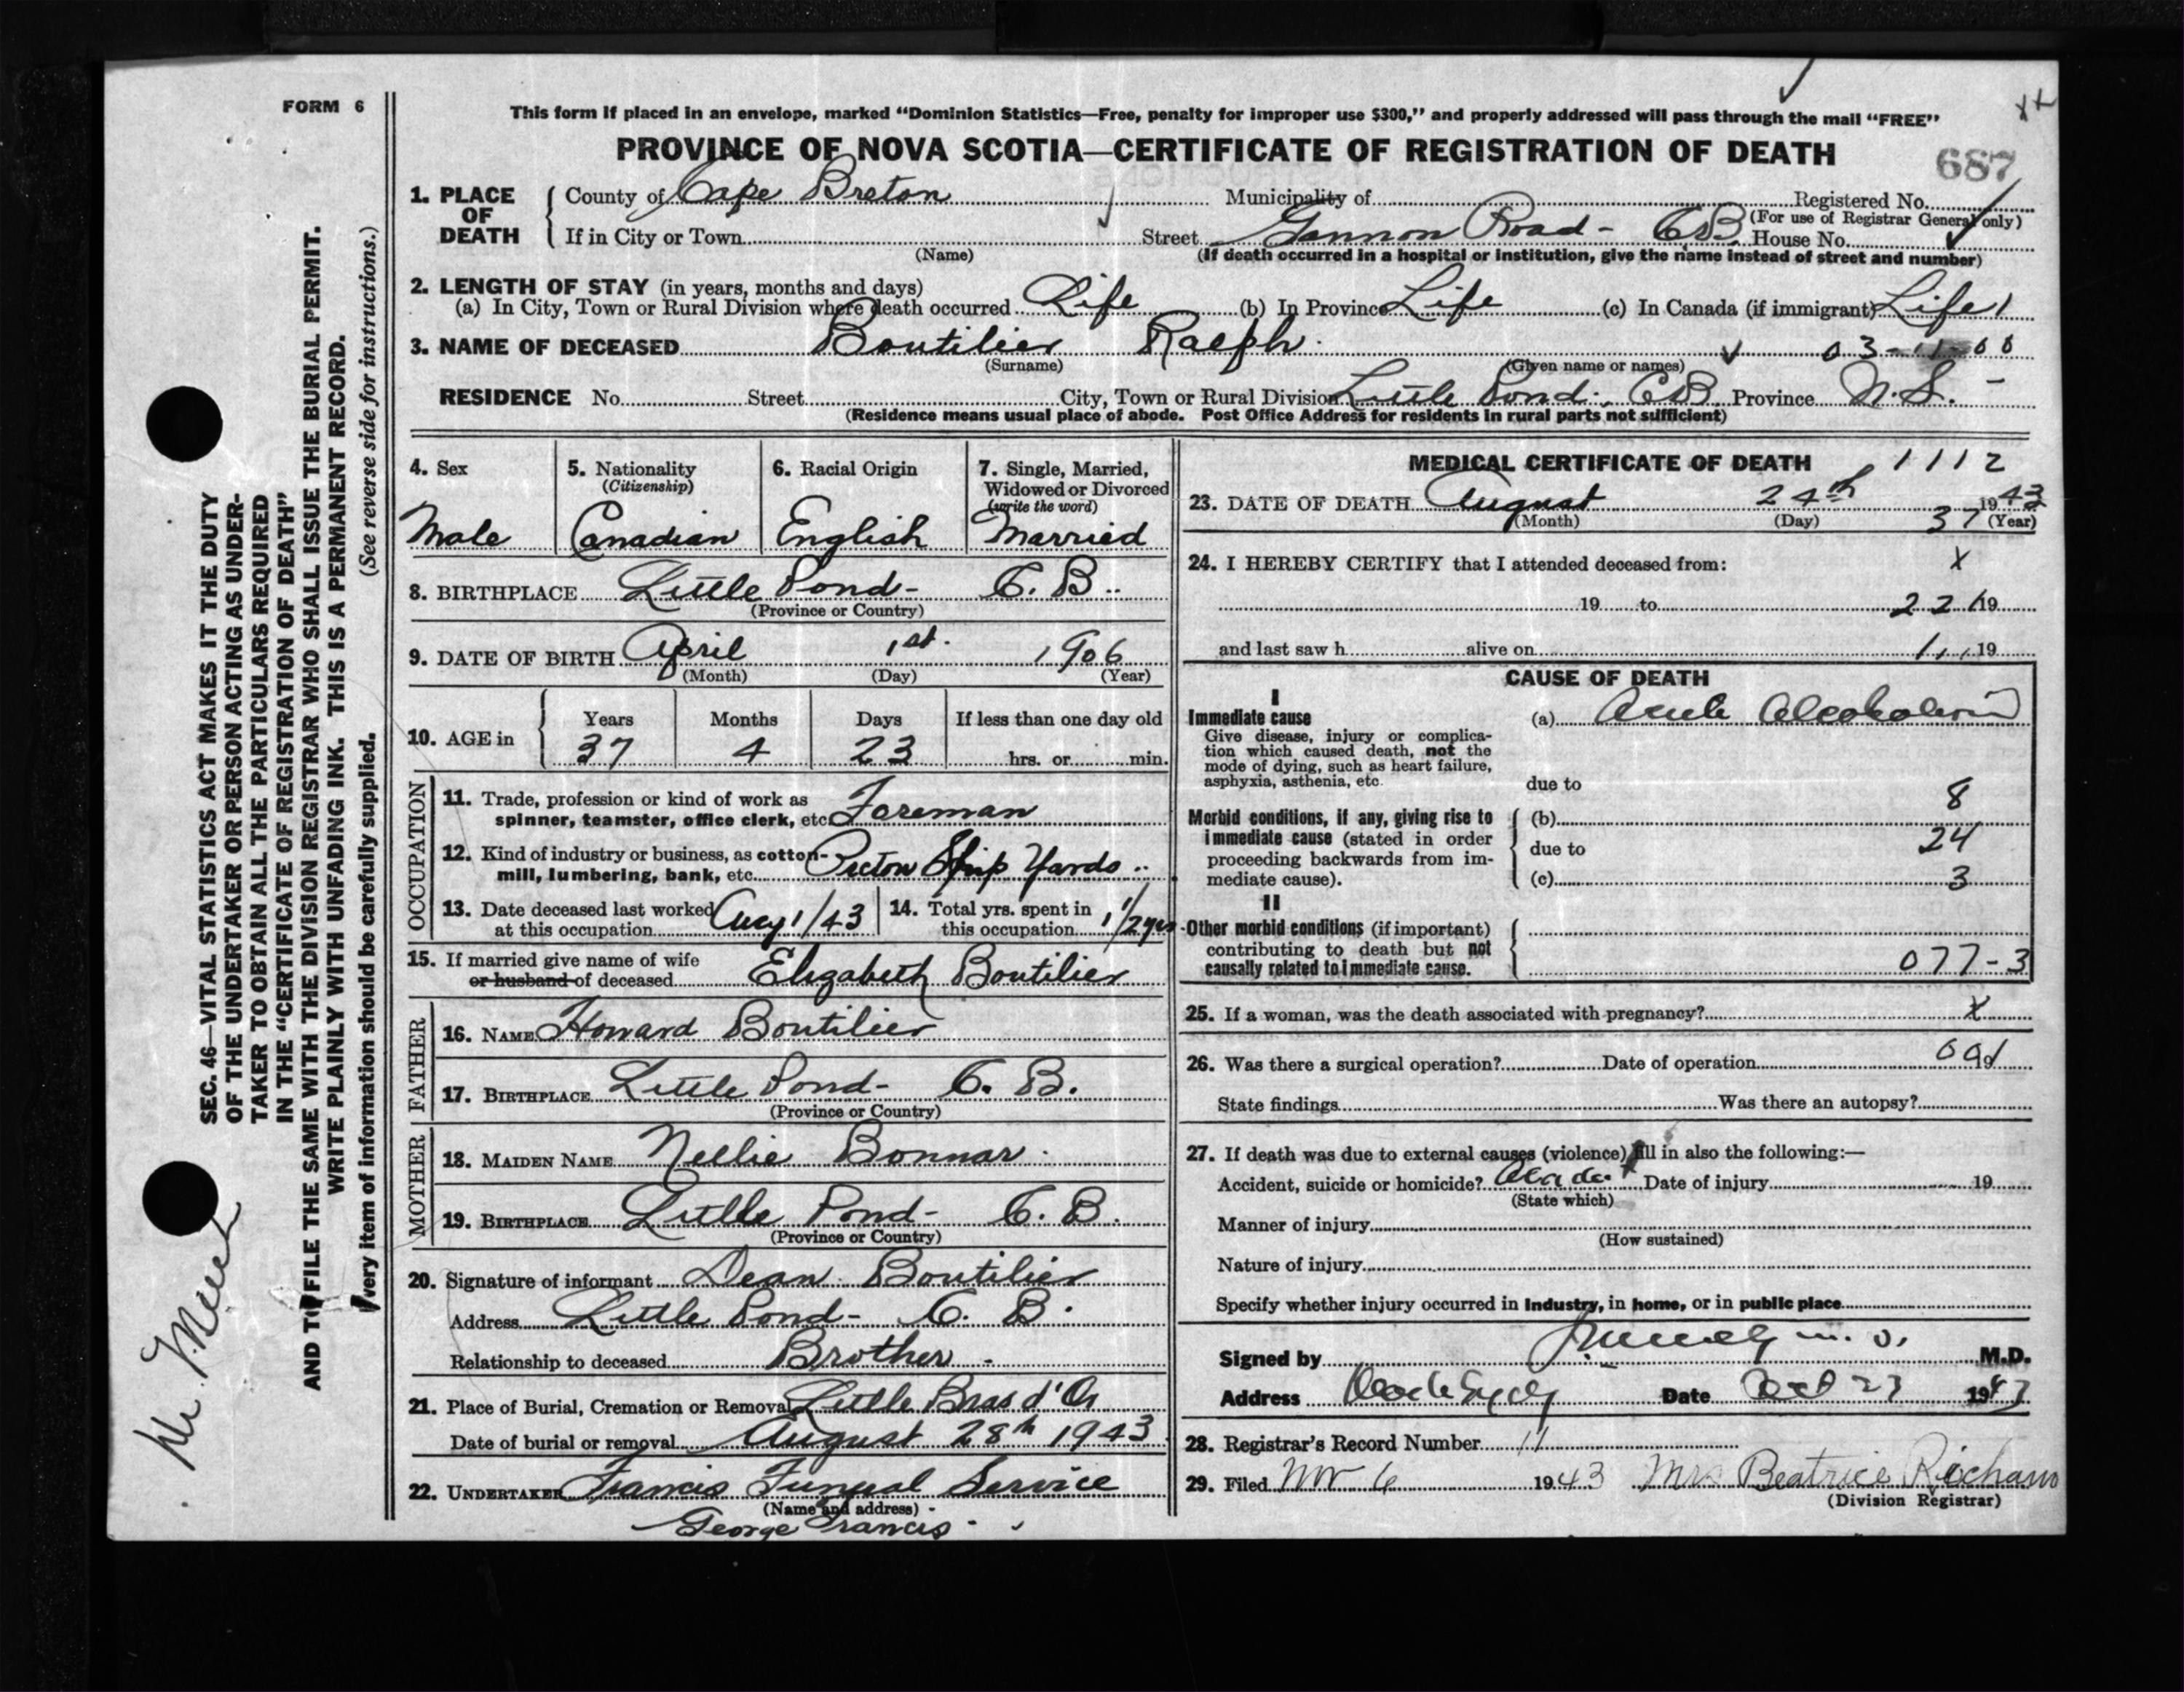 FORM 6
This form if placed in an envelope, marked "Dominion Statistics—Free, penalty for improper use $300," and properly addressed will pass through the mail "FREE"
PROVINCE OF NOVA SCOTIA—CERTIFICATE OF REGISTRATION OF DEATH
687
1. PLACE OF DEATH
County of Cape Breton Municipality of Registered No.
(For use of Registrar General only)
If in City or Town Street Gannon Road - C.B. House No.
(Name) (If death occurred in a hospital or institution, give the name instead of street and number)
2. LENGTH OF STAY (in years, months and days)
(a) In City, Town or Rural Division where death occurred Life (b) In Province Life (c) In Canada (if immigrant) Life
3. NAME OF DECEASED Boutilier Ralph. 03-11-00
(Surname) (Given name or names)
RESIDENCE No. Street City, Town or Rural Division Little Pond, CB Province N.S. -
(Residence means usual place of abode. Post Office Address for residents in rural parts not sufficient)
4. Sex
Male
5. Nationality
(Citizenship)
Canadian
6. Racial Origin
English
7. Single, Married, Widowed or Divorced
(write the word)
Married
8. BIRTHPLACE Little Pond - C. B.
(Province or Country)
9. DATE OF BIRTH April 1st. 1906
(Month) (Day) (Year)
10. AGE in
Years Months Days If less than one day old
37 4 23 hrs. or min.
OCCUPATION
11. Trade, profession or kind of work as spinner, teamster, office clerk, etc. Foreman
12. Kind of industry or business, as cotton-mill, lumbering, bank, etc. Pictou Ship Yards
13. Date deceased last worked at this occupation Aug 1/43
14. Total yrs. spent in this occupation 1 1/2 yrs
15. If married give name of wife or husband of deceased Elizabeth Boutilier
FATHER
16. NAME Howard Boutilier
17. BIRTHPLACE Little Pond - C. B.
(Province or Country)
MOTHER
18. MAIDEN NAME Nellie Bonnar
19. BIRTHPLACE Little Pond - C. B.
(Province or Country)
20. Signature of informant Dean Boutilier
Address Little Pond - C. B.
Relationship to deceased Brother -
21. Place of Burial, Cremation or Removal Little Bras d'Or
Date of burial or removal August 28th 1943
22. UNDERTAKER Francis Funeral Service
(Name and address) -
George Francis -
MEDICAL CERTIFICATE OF DEATH 1112
23. DATE OF DEATH August 24th 1943
(Month) (Day) 37 (Year)
24. I HEREBY CERTIFY that I attended deceased from: X
19 to 221 19
and last saw h alive on 19
CAUSE OF DEATH
I
Immediate cause
Give disease, injury or complication which caused death, not the mode of dying, such as heart failure, asphyxia, asthenia, etc.
(a) Acute Alcoholism
due to
8
Morbid conditions, if any, giving rise to immediate cause (stated in order proceeding backwards from immediate cause).
(b)
due to 24
(c) 3
II
Other morbid conditions (if important) contributing to death but not causally related to immediate cause.
077-3
25. If a woman, was the death associated with pregnancy? X
26. Was there a surgical operation? Date of operation 19
State findings Was there an autopsy?
27. If death was due to external causes (violence) fill in also the following:—
Accident, suicide or homicide? Date of injury 19
(State which)
Manner of injury
(How sustained)
Nature of injury
Specify whether injury occurred in industry, in home, or in public place
Signed by M.D.
Address Date Oct 27 1943
28. Registrar's Record Number 11
29. Filed Nov 6 1943 Mrs Beatrice Richard
(Division Registrar)
SEC. 46—VITAL STATISTICS ACT MAKES IT THE DUTY
OF THE UNDERTAKER OR PERSON ACTING AS UNDER-
TAKER TO OBTAIN ALL THE PARTICULARS REQUIRED
IN THE "CERTIFICATE OF REGISTRATION OF DEATH"
AND TO FILE THE SAME WITH THE DIVISION REGISTRAR WHO SHALL ISSUE THE BURIAL PERMIT.
WRITE PLAINLY WITH UNFADING INK. THIS IS A PERMANENT RECORD.
Every item of information should be carefully supplied. (See reverse side for instructions.)